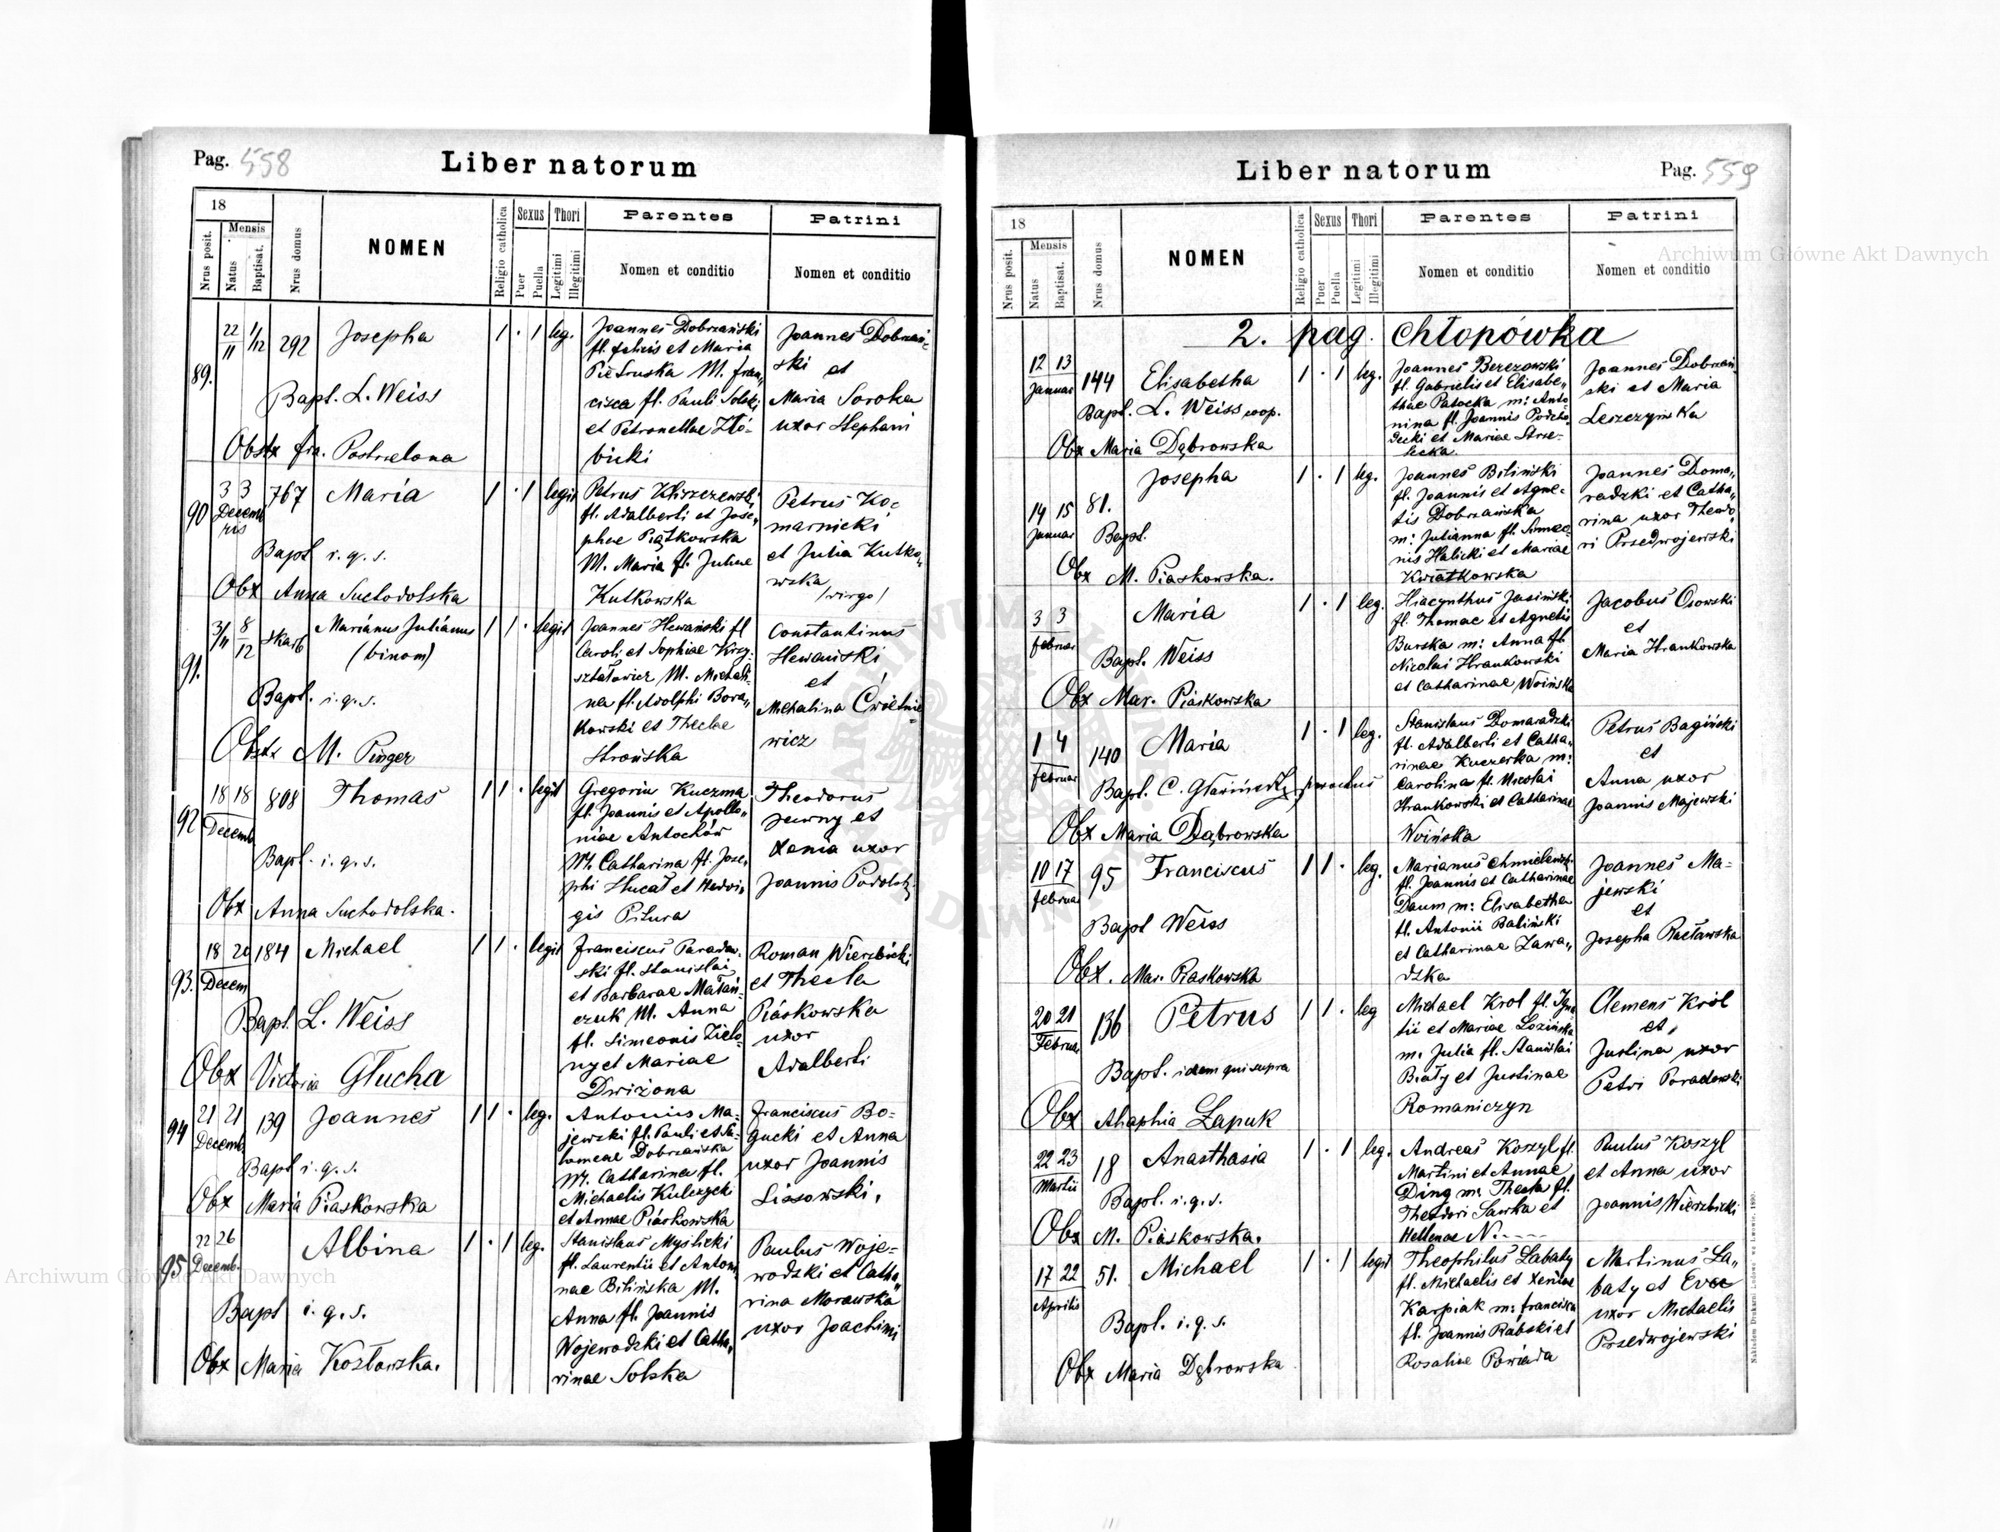 Pag. 558
Liber natorum
18
Nrus posit.
Mensis
Natus
Baptisat.
Nrus domus
NOMEN
Religio catholica
Sexus
Puer
Puella
Thori
Legitimi
Illegitimi
Parentes
Nomen et conditio
Patrini
Nomen et conditio
89.
22/11 1/12 292 Josepha 1 · 1 leg.
Bapt. L. Weiss
Obstx fra. Postrzelona
Joannes Dobrzański
fl. felicis et Maria
Pietruska M. fran„
cisca fl. Pauli Solski
et Petronellae Zło-
bicki
Joannes Dobrzań-
ski et
Maria Soroka
uxor Stephani
90
3 3 Decembris 767 Maria 1 · 1 legit
Bapt i. q. s.
Obx Anna Suchodolska
Petrus Kliszczewski
fl. Adalberti et Jose„
phae Piątkowska
M. Maria fl. Juliae
Kutkowska
Petrus Ko-
marnicki
et Julia Kutko„
wska
/virgo/
91.
3/11 8/12 skarb Marianus Julianus 1 1 · legit
(binom)
Bapt. i. q. s.
Obstx M. Pinger
Joannes Hewański fl
Caroli et Sophiae Krzy-
ształowicz M. Michali-
na fl. Adolphi Bora„
kowski et Theclae
Strońska
Constantinus
Hewański
et
Michalina Ćwietnie-
wicz
92
18 18 Decemb. 808 Thomas 1 1 · legit
Bapt. i. q. s.
Obx Anna Suchodolska.
Gregoriu Kuczma
fl. Joannis et Apollo„
niae Antochów
M. Catharina fl. Jose„
phi Stucat et Hedwi-
gis Pitura
Theodorus
Jewny et
Xenia uxor
Joannis Podolski
93.
18 20 Decem 184 Michael 1 1 · legit
Bapt. L. Weiss
Obx Victoria Głucha
Franciscus Parado-
ski fl. Stanislai
et Barbarae Małań-
czuk M. Anna
fl. Simeonis Zielo-
ny et Mariae
Dwiżona
Roman Wierzbicki
et Thecla
Piaskowska
uxor
Adalberti
94
21 21 Decemb. 139 Joannes 1 1 · leg.
Bapt i. q. s.
Obx Maria Piaskowska
Antonius Ma-
jewski fl. Pauli et Sa-
lomeae Dobrzańska
M. Catharina fl.
Michaelis Kulczycki
et Annae Piaskowska
Franciscus Bo-
gucki et Anna
uxor Joannis
Lissowski.
95
22 26 Decemb. Albina 1 · 1 leg.
Bapt i. q. s.
Obx Maria Kozłowska.
Stanislaus Myślicki
fl. Laurentii et Anton
nae Bilińska M.
Anna fl. Joannis
Wojewodzki et Catha„
rinae Solska
Paulus Woje-
wodzki et Catha„
rina Morawska
uxor Joachimi
Liber natorum
Pag. 559
18
Nrus posit.
Mensis
Natus
Baptisat.
Nrus domus
NOMEN
Religio catholica
Sexus
Puer
Puella
Thori
Legitimi
Illegitimi
Parentes
Nomen et conditio
Patrini
Nomen et conditio
2. pag. Chłopówka
12 13 Januar 144 Elisabetha 1 · 1 leg.
Bapt. L. Weiss coop.
Obx Maria Dąbrowska
Joannes Berezowski
fl. Gabrielis et Elisabe„
thae Patocka m: Anto
nina fl. Joannis Podho
decki et Mariae Strze-
lecka.
Joannes Dobrzań
ski et Maria
Leszczyńska
14 15 Januar 81. Josepha 1 · 1 leg.
Bapt.
Obx M. Piaskowska.
Joannes Biliński
fl. Joannis et Agne-
tis Dobrzańska
m: Julianna fl. Simeo-
nis Halicki et Mariae
Kwiatkowska
Joannes Doma„
radzki et Catha„
rina uxor Theodo
ri Przedwojewski
3 3 februar Maria 1 · 1 leg.
Bapt. Weiss
Obx Mar. Piaskowska
Hiacynthus Jasiński
fl. Thomae et Agnetis
Burska m: Anna fl.
Nicolai Hrankowski
et Catharinae Woińska
Jacobus Osowski
et
Maria Hrankowska
1 4 februar 140 Maria 1 · 1 leg.
Bapt. C. parochus
Obx Maria Dąbrowska
Stanislaus Domaradzki
fl. Adalberti et Catha„
rinae Kuczerka m:
Carolina fl. Nicolai
Hrankowski et Catharinae
Woińska
Petrus Bagiński
et
Anna uxor
Joannis Majewski
10 17 februa 95 Franciscus 1 1 · leg.
Bapt Weiss
Obx. Mar. Piaskowska
Marianus Chmielewski
fl. Joannis et Catharinae
Daum m: Elisabetha
fl. Antonii Baliński
et Catharinae Zawa„
dzka
Joannes Ma-
jewski
et
Josepha Racławska
20 21 Februar 136 Petrus 1 1 · leg
Bapt. idem qui supra
Obx Ahaphia Łapuk
Michael Krol fl. Igna
tii et Mariae Lozińska
m. Julia fl. Stanislai
Biały et Justinae
Romaniczyn
Clemens Król
et
Justina uxor
Petri Poradowski
22 23 Martii 18 Anasthasia 1 · 1 leg.
Bapt. i. q. s.
Obx M. Piaskowska.
Andreas Koszyl fl.
Martini et Annae
Ding m: Thecla fl.
Theodori Sawka et
Hellenae N. - - -
Paulus Koszyl
et Anna uxor
Joannis Wierzbicki
17 22 Aprilis 51. Michael 1 · 1 legit
Bapt. i. q. s.
Obx Maria Dąbrowska
Theophilus Labaty
fl. Michaelis et Xeniae
Karpiak m: francisca
fl. Joannis Rabski et
Rosaliae Powiada
Martinus La„
baty et Evae
uxor Michaelis
Przedwojewski
Archiwum Główne Akt Dawnych
Archiwum Główne Akt Dawnych